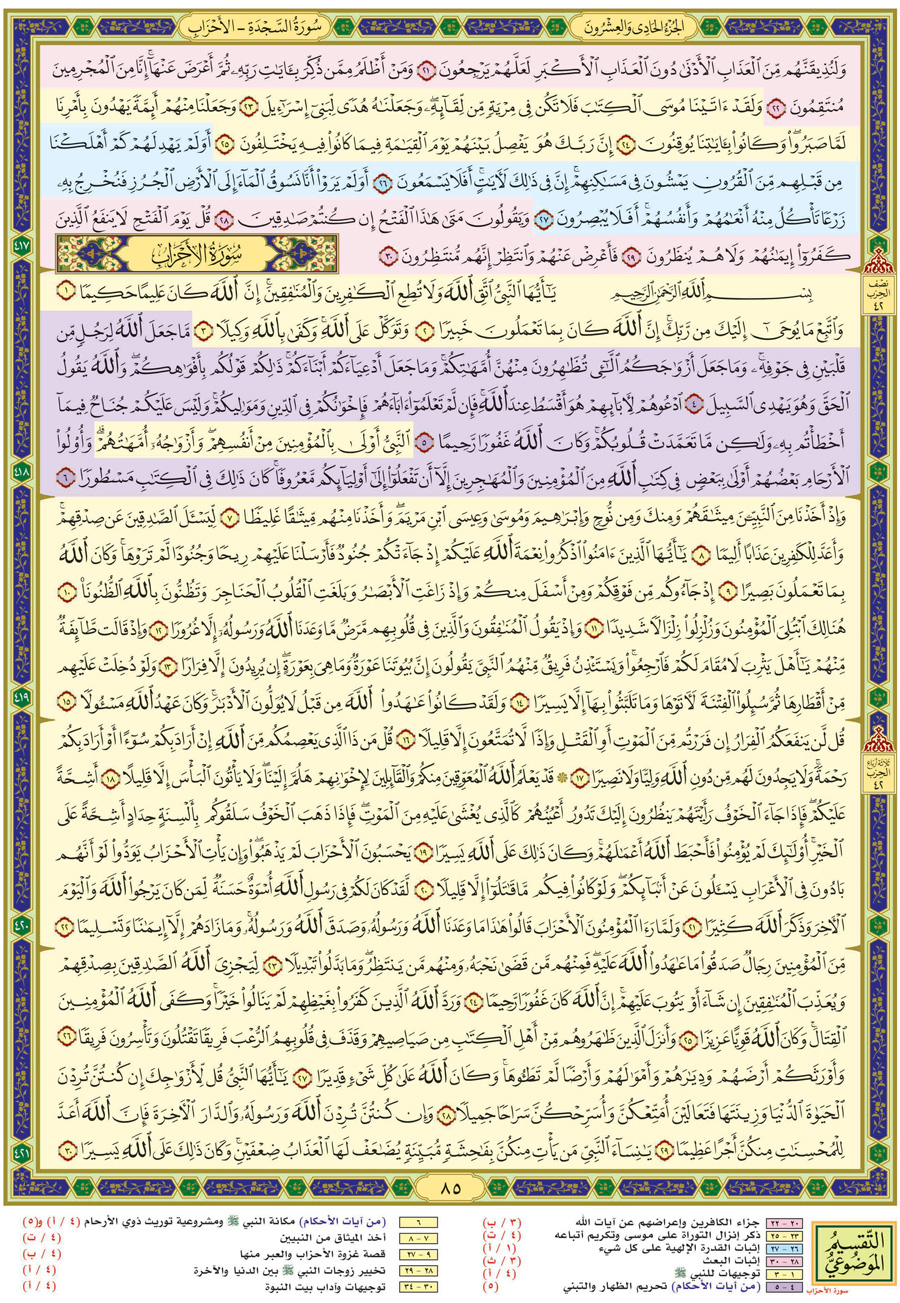 الجزء الحادي والعشرون
سورة السجدة - الأحزاب
وَلَنُذِيقَنَّهُم مِّنَ ٱلْعَذَابِ ٱلْأَدْنَىٰ دُونَ ٱلْعَذَابِ ٱلْأَكْبَرِ لَعَلَّهُمْ يَرْجِعُونَ ٢١ وَمَنْ أَظْلَمُ مِمَّن ذُكِّرَ بِـَٔايَٰتِ رَبِّهِۦ ثُمَّ أَعْرَضَ عَنْهَآ إِنَّا مِنَ ٱلْمُجْرِمِينَ
مُنتَقِمُونَ ٢٢ وَلَقَدْ ءَاتَيْنَا مُوسَى ٱلْكِتَٰبَ فَلَا تَكُن فِى مِرْيَةٍ مِّن لِّقَآئِهِۦ وَجَعَلْنَٰهُ هُدًى لِّبَنِىٓ إِسْرَٰٓءِيلَ ٢٣ وَجَعَلْنَا مِنْهُمْ أَئِمَّةً يَهْدُونَ بِأَمْرِنَا
لَمَّا صَبَرُوا۟ وَكَانُوا۟ بِـَٔايَٰتِنَا يُوقِنُونَ ٢٤ إِنَّ رَبَّكَ هُوَ يَفْصِلُ بَيْنَهُمْ يَوْمَ ٱلْقِيَٰمَةِ فِيمَا كَانُوا۟ فِيهِ يَخْتَلِفُونَ ٢٥ أَوَلَمْ يَهْدِ لَهُمْ كَمْ أَهْلَكْنَا
مِن قَبْلِهِم مِّنَ ٱلْقُرُونِ يَمْشُونَ فِى مَسَٰكِنِهِمْ إِنَّ فِى ذَٰلِكَ لَـَٔايَٰتٍ أَفَلَا يَسْمَعُونَ ٢٦ أَوَلَمْ يَرَوْا۟ أَنَّا نَسُوقُ ٱلْمَآءَ إِلَى ٱلْأَرْضِ ٱلْجُرُزِ فَنُخْرِجُ بِهِۦ
زَرْعًا تَأْكُلُ مِنْهُ أَنْعَٰمُهُمْ وَأَنفُسُهُمْ أَفَلَا يُبْصِرُونَ ٢٧ وَيَقُولُونَ مَتَىٰ هَٰذَا ٱلْفَتْحُ إِن كُنتُمْ صَٰدِقِينَ ٢٨ قُلْ يَوْمَ ٱلْفَتْحِ لَا يَنفَعُ ٱلَّذِينَ
كَفَرُوٓا۟ إِيمَٰنُهُمْ وَلَا هُمْ يُنظَرُونَ ٢٩ فَأَعْرِضْ عَنْهُمْ وَٱنتَظِرْ إِنَّهُم مُّنتَظِرُونَ ٣٠
سورة الأحزاب
بِسْمِ ٱللَّهِ ٱلرَّحْمَٰنِ ٱلرَّحِيمِ يَٰٓأَيُّهَا ٱلنَّبِىُّ ٱتَّقِ ٱللَّهَ وَلَا تُطِعِ ٱلْكَٰفِرِينَ وَٱلْمُنَٰفِقِينَ إِنَّ ٱللَّهَ كَانَ عَلِيمًا حَكِيمًا ١
وَٱتَّبِعْ مَا يُوحَىٰٓ إِلَيْكَ مِن رَّبِّكَ إِنَّ ٱللَّهَ كَانَ بِمَا تَعْمَلُونَ خَبِيرًا ٢ وَتَوَكَّلْ عَلَى ٱللَّهِ وَكَفَىٰ بِٱللَّهِ وَكِيلًا ٣ مَّا جَعَلَ ٱللَّهُ لِرَجُلٍ مِّن
قَلْبَيْنِ فِى جَوْفِهِۦ وَمَا جَعَلَ أَزْوَٰجَكُمُ ٱلَّٰٓـِٔى تُظَٰهِرُونَ مِنْهُنَّ أُمَّهَٰتِكُمْ وَمَا جَعَلَ أَدْعِيَآءَكُمْ أَبْنَآءَكُمْ ذَٰلِكُمْ قَوْلُكُم بِأَفْوَٰهِكُمْ وَٱللَّهُ يَقُولُ
ٱلْحَقَّ وَهُوَ يَهْدِى ٱلسَّبِيلَ ٤ ٱدْعُوهُمْ لِـَٔابَآئِهِمْ هُوَ أَقْسَطُ عِندَ ٱللَّهِ فَإِن لَّمْ تَعْلَمُوٓا۟ ءَابَآءَهُمْ فَإِخْوَٰنُكُمْ فِى ٱلدِّينِ وَمَوَٰلِيكُمْ وَلَيْسَ عَلَيْكُمْ جُنَاحٌ فِيمَآ
أَخْطَأْتُم بِهِۦ وَلَٰكِن مَّا تَعَمَّدَتْ قُلُوبُكُمْ وَكَانَ ٱللَّهُ غَفُورًا رَّحِيمًا ٥ ٱلنَّبِىُّ أَوْلَىٰ بِٱلْمُؤْمِنِينَ مِنْ أَنفُسِهِمْ وَأَزْوَٰجُهُۥٓ أُمَّهَٰتُهُمْ وَأُو۟لُوا۟
ٱلْأَرْحَامِ بَعْضُهُمْ أَوْلَىٰ بِبَعْضٍ فِى كِتَٰبِ ٱللَّهِ مِنَ ٱلْمُؤْمِنِينَ وَٱلْمُهَٰجِرِينَ إِلَّآ أَن تَفْعَلُوٓا۟ إِلَىٰٓ أَوْلِيَآئِكُم مَّعْرُوفًا كَانَ ذَٰلِكَ فِى ٱلْكِتَٰبِ مَسْطُورًا ٦
وَإِذْ أَخَذْنَا مِنَ ٱلنَّبِيِّـۧنَ مِيثَٰقَهُمْ وَمِنكَ وَمِن نُّوحٍ وَإِبْرَٰهِيمَ وَمُوسَىٰ وَعِيسَى ٱبْنِ مَرْيَمَ وَأَخَذْنَا مِنْهُم مِّيثَٰقًا غَلِيظًا ٧ لِّيَسْـَٔلَ ٱلصَّٰدِقِينَ عَن صِدْقِهِمْ
وَأَعَدَّ لِلْكَٰفِرِينَ عَذَابًا أَلِيمًا ٨ يَٰٓأَيُّهَا ٱلَّذِينَ ءَامَنُوا۟ ٱذْكُرُوا۟ نِعْمَةَ ٱللَّهِ عَلَيْكُمْ إِذْ جَآءَتْكُمْ جُنُودٌ فَأَرْسَلْنَا عَلَيْهِمْ رِيحًا وَجُنُودًا لَّمْ تَرَوْهَا وَكَانَ ٱللَّهُ
بِمَا تَعْمَلُونَ بَصِيرًا ٩ إِذْ جَآءُوكُم مِّن فَوْقِكُمْ وَمِنْ أَسْفَلَ مِنكُمْ وَإِذْ زَاغَتِ ٱلْأَبْصَٰرُ وَبَلَغَتِ ٱلْقُلُوبُ ٱلْحَنَاجِرَ وَتَظُنُّونَ بِٱللَّهِ ٱلظُّنُونَا۠ ١٠
هُنَالِكَ ٱبْتُلِىَ ٱلْمُؤْمِنُونَ وَزُلْزِلُوا۟ زِلْزَالًا شَدِيدًا ١١ وَإِذْ يَقُولُ ٱلْمُنَٰفِقُونَ وَٱلَّذِينَ فِى قُلُوبِهِم مَّرَضٌ مَّا وَعَدَنَا ٱللَّهُ وَرَسُولُهُۥٓ إِلَّا غُرُورًا ١٢ وَإِذْ قَالَت طَّآئِفَةٌ
مِّنْهُمْ يَٰٓأَهْلَ يَثْرِبَ لَا مُقَامَ لَكُمْ فَٱرْجِعُوا۟ وَيَسْتَـْٔذِنُ فَرِيقٌ مِّنْهُمُ ٱلنَّبِىَّ يَقُولُونَ إِنَّ بُيُوتَنَا عَوْرَةٌ وَمَا هِىَ بِعَوْرَةٍ إِن يُرِيدُونَ إِلَّا فِرَارًا ١٣ وَلَوْ دُخِلَتْ عَلَيْهِم
مِّنْ أَقْطَارِهَا ثُمَّ سُئِلُوا۟ ٱلْفِتْنَةَ لَـَٔاتَوْهَا وَمَا تَلَبَّثُوا۟ بِهَآ إِلَّا يَسِيرًا ١٤ وَلَقَدْ كَانُوا۟ عَٰهَدُوا۟ ٱللَّهَ مِن قَبْلُ لَا يُوَلُّونَ ٱلْأَدْبَٰرَ وَكَانَ عَهْدُ ٱللَّهِ مَسْـُٔولًا ١٥
قُل لَّن يَنفَعَكُمُ ٱلْفِرَارُ إِن فَرَرْتُم مِّنَ ٱلْمَوْتِ أَوِ ٱلْقَتْلِ وَإِذًا لَّا تُمَتَّعُونَ إِلَّا قَلِيلًا ١٦ قُلْ مَن ذَا ٱلَّذِى يَعْصِمُكُم مِّنَ ٱللَّهِ إِنْ أَرَادَ بِكُمْ سُوٓءًا أَوْ أَرَادَ بِكُمْ
رَحْمَةً وَلَا يَجِدُونَ لَهُم مِّن دُونِ ٱللَّهِ وَلِيًّا وَلَا نَصِيرًا ١٧ ۞ قَدْ يَعْلَمُ ٱللَّهُ ٱلْمُعَوِّقِينَ مِنكُمْ وَٱلْقَآئِلِينَ لِإِخْوَٰنِهِمْ هَلُمَّ إِلَيْنَا وَلَا يَأْتُونَ ٱلْبَأْسَ إِلَّا قَلِيلًا ١٨ أَشِحَّةً
عَلَيْكُمْ فَإِذَا جَآءَ ٱلْخَوْفُ رَأَيْتَهُمْ يَنظُرُونَ إِلَيْكَ تَدُورُ أَعْيُنُهُمْ كَٱلَّذِى يُغْشَىٰ عَلَيْهِ مِنَ ٱلْمَوْتِ فَإِذَا ذَهَبَ ٱلْخَوْفُ سَلَقُوكُم بِأَلْسِنَةٍ حِدَادٍ أَشِحَّةً عَلَى
ٱلْخَيْرِ أُو۟لَٰٓئِكَ لَمْ يُؤْمِنُوا۟ فَأَحْبَطَ ٱللَّهُ أَعْمَٰلَهُمْ وَكَانَ ذَٰلِكَ عَلَى ٱللَّهِ يَسِيرًا ١٩ يَحْسَبُونَ ٱلْأَحْزَابَ لَمْ يَذْهَبُوا۟ وَإِن يَأْتِ ٱلْأَحْزَابُ يَوَدُّوا۟ لَوْ أَنَّهُم
بَادُونَ فِى ٱلْأَعْرَابِ يَسْـَٔلُونَ عَنْ أَنۢبَآئِكُمْ وَلَوْ كَانُوا۟ فِيكُم مَّا قَٰتَلُوٓا۟ إِلَّا قَلِيلًا ٢٠ لَّقَدْ كَانَ لَكُمْ فِى رَسُولِ ٱللَّهِ أُسْوَةٌ حَسَنَةٌ لِّمَن كَانَ يَرْجُوا۟ ٱللَّهَ وَٱلْيَوْمَ
ٱلْـَٔاخِرَ وَذَكَرَ ٱللَّهَ كَثِيرًا ٢١ وَلَمَّا رَءَا ٱلْمُؤْمِنُونَ ٱلْأَحْزَابَ قَالُوا۟ هَٰذَا مَا وَعَدَنَا ٱللَّهُ وَرَسُولُهُۥ وَصَدَقَ ٱللَّهُ وَرَسُولُهُۥ وَمَا زَادَهُمْ إِلَّآ إِيمَٰنًا وَتَسْلِيمًا ٢٢
مِّنَ ٱلْمُؤْمِنِينَ رِجَالٌ صَدَقُوا۟ مَا عَٰهَدُوا۟ ٱللَّهَ عَلَيْهِ فَمِنْهُم مَّن قَضَىٰ نَحْبَهُۥ وَمِنْهُم مَّن يَنتَظِرُ وَمَا بَدَّلُوا۟ تَبْدِيلًا ٢٣ لِّيَجْزِىَ ٱللَّهُ ٱلصَّٰدِقِينَ بِصِدْقِهِمْ
وَيُعَذِّبَ ٱلْمُنَٰفِقِينَ إِن شَآءَ أَوْ يَتُوبَ عَلَيْهِمْ إِنَّ ٱللَّهَ كَانَ غَفُورًا رَّحِيمًا ٢٤ وَرَدَّ ٱللَّهُ ٱلَّذِينَ كَفَرُوا۟ بِغَيْظِهِمْ لَمْ يَنَالُوا۟ خَيْرًا وَكَفَى ٱللَّهُ ٱلْمُؤْمِنِينَ
ٱلْقِتَالَ وَكَانَ ٱللَّهُ قَوِيًّا عَزِيزًا ٢٥ وَأَنزَلَ ٱلَّذِينَ ظَٰهَرُوهُم مِّنْ أَهْلِ ٱلْكِتَٰبِ مِن صَيَاصِيهِمْ وَقَذَفَ فِى قُلُوبِهِمُ ٱلرُّعْبَ فَرِيقًا تَقْتُلُونَ وَتَأْسِرُونَ فَرِيقًا ٢٦
وَأَوْرَثَكُمْ أَرْضَهُمْ وَدِيَٰرَهُمْ وَأَمْوَٰلَهُمْ وَأَرْضًا لَّمْ تَطَـُٔوهَا وَكَانَ ٱللَّهُ عَلَىٰ كُلِّ شَىْءٍ قَدِيرًا ٢٧ يَٰٓأَيُّهَا ٱلنَّبِىُّ قُل لِّأَزْوَٰجِكَ إِن كُنتُنَّ تُرِدْنَ
ٱلْحَيَوٰةَ ٱلدُّنْيَا وَزِينَتَهَا فَتَعَالَيْنَ أُمَتِّعْكُنَّ وَأُسَرِّحْكُنَّ سَرَاحًا جَمِيلًا ٢٨ وَإِن كُنتُنَّ تُرِدْنَ ٱللَّهَ وَرَسُولَهُۥ وَٱلدَّارَ ٱلْـَٔاخِرَةَ فَإِنَّ ٱللَّهَ أَعَدَّ
لِلْمُحْسِنَٰتِ مِنكُنَّ أَجْرًا عَظِيمًا ٢٩ يَٰنِسَآءَ ٱلنَّبِىِّ مَن يَأْتِ مِنكُنَّ بِفَٰحِشَةٍ مُّبَيِّنَةٍ يُضَٰعَفْ لَهَا ٱلْعَذَابُ ضِعْفَيْنِ وَكَانَ ذَٰلِكَ عَلَى ٱللَّهِ يَسِيرًا ٣٠
نصف الحزب ٤٢
ثلاثة أرباع الحزب ٤٢
٤١٧
٤١٨
٤١٩
٤٢٠
٤٢١
٨٥
التقسيم الموضوعي
سورة الأحزاب
٢٠ - ٢٢ جزاء الكافرين وإعراضهم عن آيات الله (٣ / ب)
٢٣ - ٢٥ ذكر إنزال التوراة على موسى وتكريم أتباعه (٤ / ت)
٢٦ - ٢٧ إثبات القدرة الإلهية على كل شيء (١ / أ)
٢٨ - ٣٠ إثبات البعث (٣ / ث)
١ - ٣ توجيهات للنبي ﷺ (٤ / أ)
٤ - ٥ (من آيات الأحكام) تحريم الظهار والتبني (٥)
٦ (من آيات الأحكام) مكانة النبي ﷺ ومشروعية توريث ذوي الأرحام (٤ / أ) و(٥)
٧ - ٨ أخذ الميثاق من النبيين (٤ / ت)
٩ - ٢٧ قصة غزوة الأحزاب والعبر منها (٤ / ب)
٢٨ - ٢٩ تخيير زوجات النبي ﷺ بين الدنيا والآخرة (٤ / أ)
٣٠ - ٣٤ توجيهات وآداب بيت النبوة (٤ / أ)